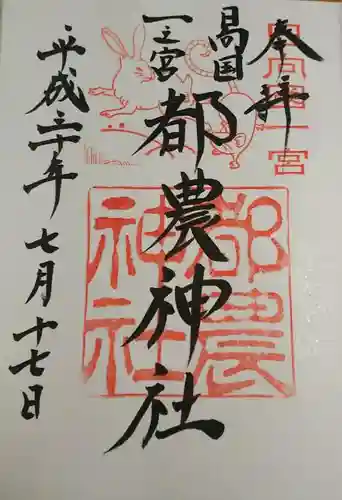 奉拝
日向国
一之宮
都農神社
平成三十年七月十七日
日向国一宮
都農神社